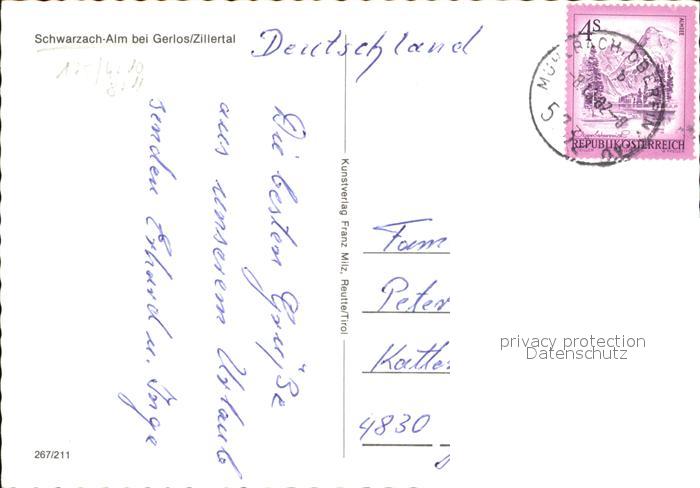 Schwarzach-Alm bei Gerlos/Zillertal
Deutschland
4S
ALMSEE
REPUBLIK ÖSTERREICH
Die besten Grüße
aus unserem Urlaub
senden Erhard u. Inge
Kunstverlag Franz Milz, Reutte/Tirol
Fam
Peter
4830
privacy protection
Datenschutz
267/211